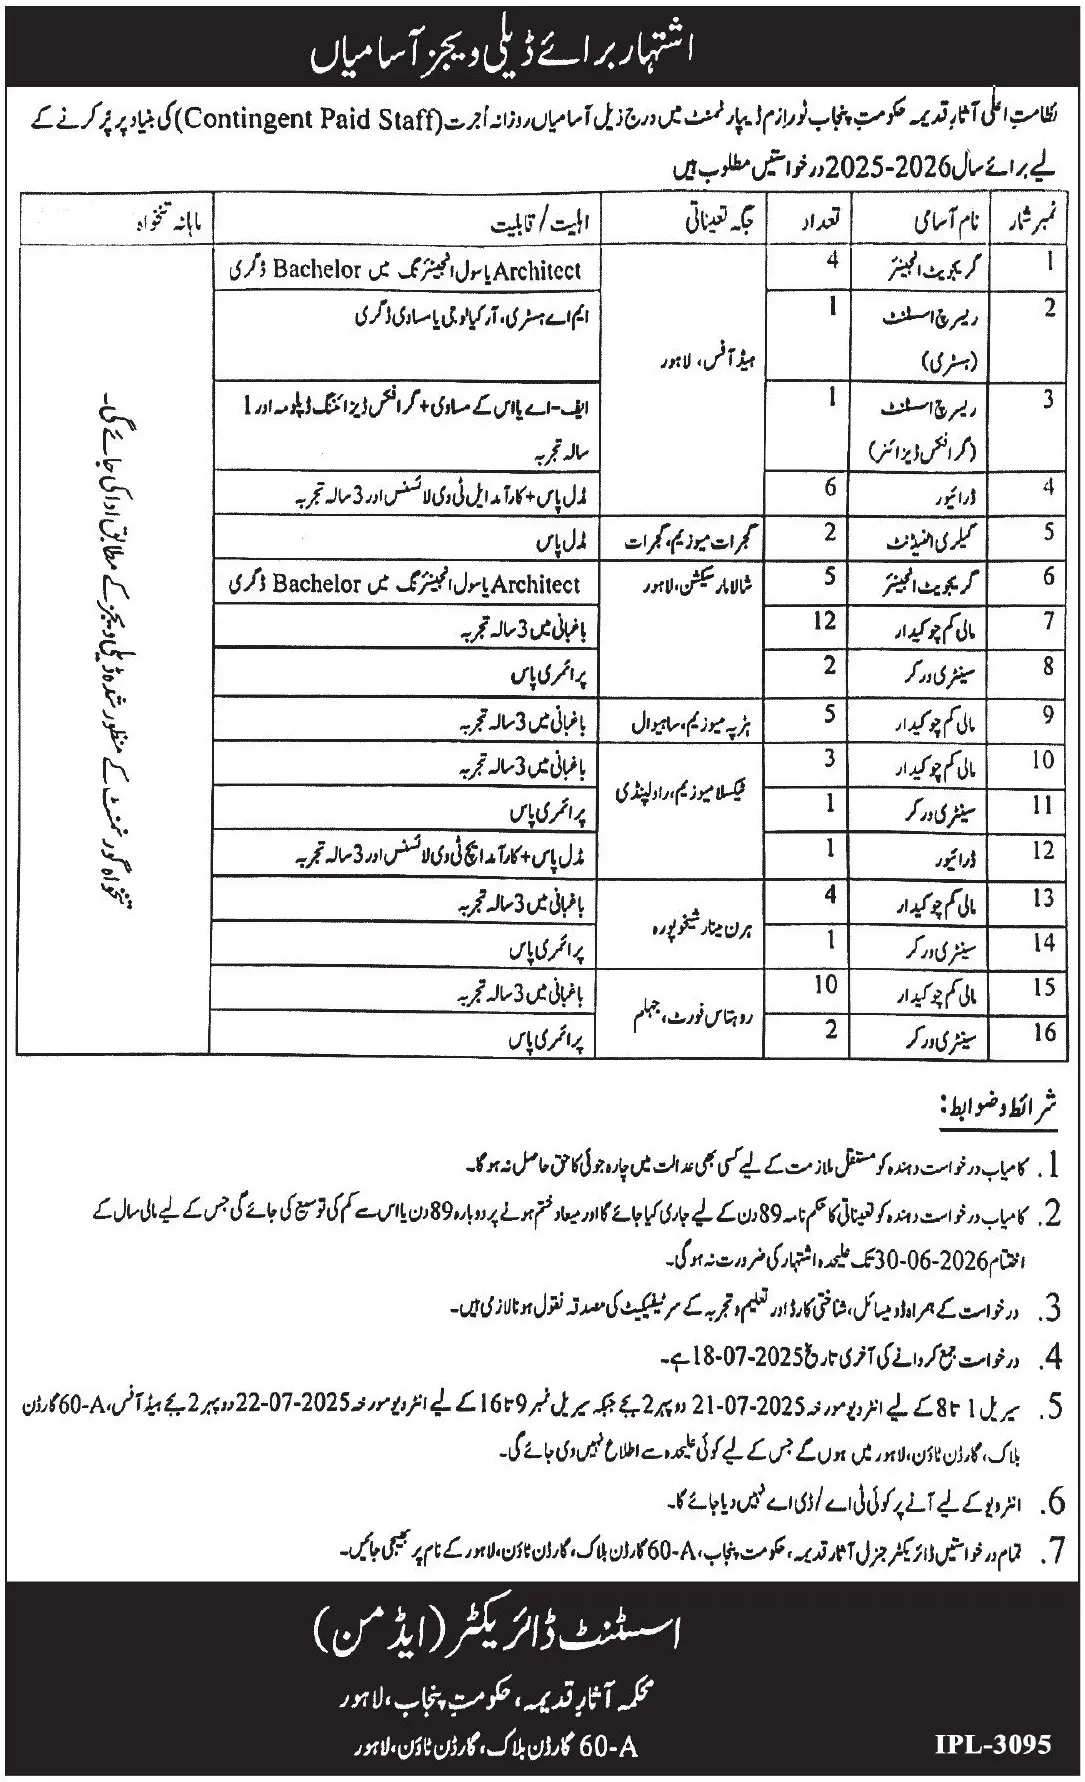 اشتہار برائے ڈیلی ویجز آسامیاں
نظامتِ اعلیٰ آثارِ قدیمہ حکومتِ پنجاب ٹورازم ڈیپارٹمنٹ میں درج ذیل آسامیاں روزانہ اُجرت (Contingent Paid Staff) کی بنیاد پر پُر کرنے کے
لیے برائے سال 2026-2025 درخواستیں مطلوب ہیں
نمبر شمار نام آسامی تعداد جگہ تعیناتی اہلیت / قابلیت ماہانہ تنخواہ
1 گریجویٹ انجینئر 4 ہیڈ آفس، لاہور Architect یا سول انجینئرنگ میں Bachelor ڈگری
2 ریسرچ اسسٹنٹ (ہسٹری) 1 ایم اے ہسٹری، آرکیالوجی یا مساوی ڈگری
3 ریسرچ اسسٹنٹ (گرافکس ڈیزائنر) 1 ایف-اے یا اس کے مساوی + گرافکس ڈیزائننگ ڈپلومہ اور 1 سالہ تجربہ
4 ڈرائیور 6 مڈل پاس + کارآمد ایل ٹی وی لائسنس اور 3 سالہ تجربہ
5 گیلری اٹینڈنٹ 2 گجرات میوزیم، گجرات مڈل پاس
6 گریجویٹ انجینئر 5 شالامار سیکشن، لاہور Architect یا سول انجینئرنگ میں Bachelor ڈگری
7 مالی کم چوکیدار 12 باغبانی میں 3 سالہ تجربہ
8 سینٹری ورکر 2 پرائمری پاس
9 مالی کم چوکیدار 5 ہڑپہ میوزیم، ساہیوال باغبانی میں 3 سالہ تجربہ
10 مالی کم چوکیدار 3 ٹیکسلا میوزیم، راولپنڈی باغبانی میں 3 سالہ تجربہ
11 سینٹری ورکر 1 پرائمری پاس
12 ڈرائیور 1 مڈل پاس + کارآمد ایچ ٹی وی لائسنس اور 3 سالہ تجربہ
13 مالی کم چوکیدار 4 ہرن مینار شیخوپورہ باغبانی میں 3 سالہ تجربہ
14 سینٹری ورکر 1 پرائمری پاس
15 مالی کم چوکیدار 10 روہتاس فورٹ، جہلم باغبانی میں 3 سالہ تجربہ
16 سینٹری ورکر 2 پرائمری پاس
تنخواہ گورنمنٹ کے منظور شدہ ڈیلی ویجز کے مطابق ادا کی جائے گی۔
شرائط و ضوابط:
1. کامیاب درخواست دہندہ کو مستقل ملازمت کے لیے کسی بھی عدالت میں چارہ جوئی کا حق حاصل نہ ہو گا۔
2. کامیاب درخواست دہندہ کو تعیناتی کا حکم نامہ 89 دن کے لیے جاری کیا جائے گا اور میعاد ختم ہونے پر دوبارہ 89 دن یا اس سے کم کی توسیع کی جائے گی جس کے لیے مالی سال کے
اختتام 2026-06-30 تک علیحدہ اشتہار کی ضرورت نہ ہو گی۔
3. درخواست کے ہمراہ ڈومیسائل، شناختی کارڈ اور تعلیم و تجربہ کے سرٹیفکیٹ کی مصدقہ نقول ہونا لازمی ہیں۔
4. درخواست جمع کروانے کی آخری تاریخ 2025-07-18 ہے۔
5. سیریل 1 تا 8 کے لیے انٹرویو مورخہ 2025-07-21 دوپہر 2 بجے جبکہ سیریل نمبر 9 تا 16 کے لیے انٹرویو مورخہ 2025-07-22 دوپہر 2 بجے ہیڈ آفس، 60-A گارڈن
بلاک، گارڈن ٹاؤن، لاہور میں ہوں گے جس کے لیے کوئی علیحدہ سے اطلاع نہیں دی جائے گی۔
6. انٹرویو کے لیے آنے پر کوئی ٹی اے / ڈی اے نہیں دیا جائے گا۔
7. تمام درخواستیں ڈائریکٹر جنرل آثارِ قدیمہ، حکومت پنجاب، 60-A گارڈن بلاک، گارڈن ٹاؤن، لاہور کے نام پر بھیجی جائیں۔
اسسٹنٹ ڈائریکٹر (ایڈمن)
محکمہ آثارِ قدیمہ، حکومتِ پنجاب، لاہور
60-A گارڈن بلاک، گارڈن ٹاؤن، لاہور
IPL-3095